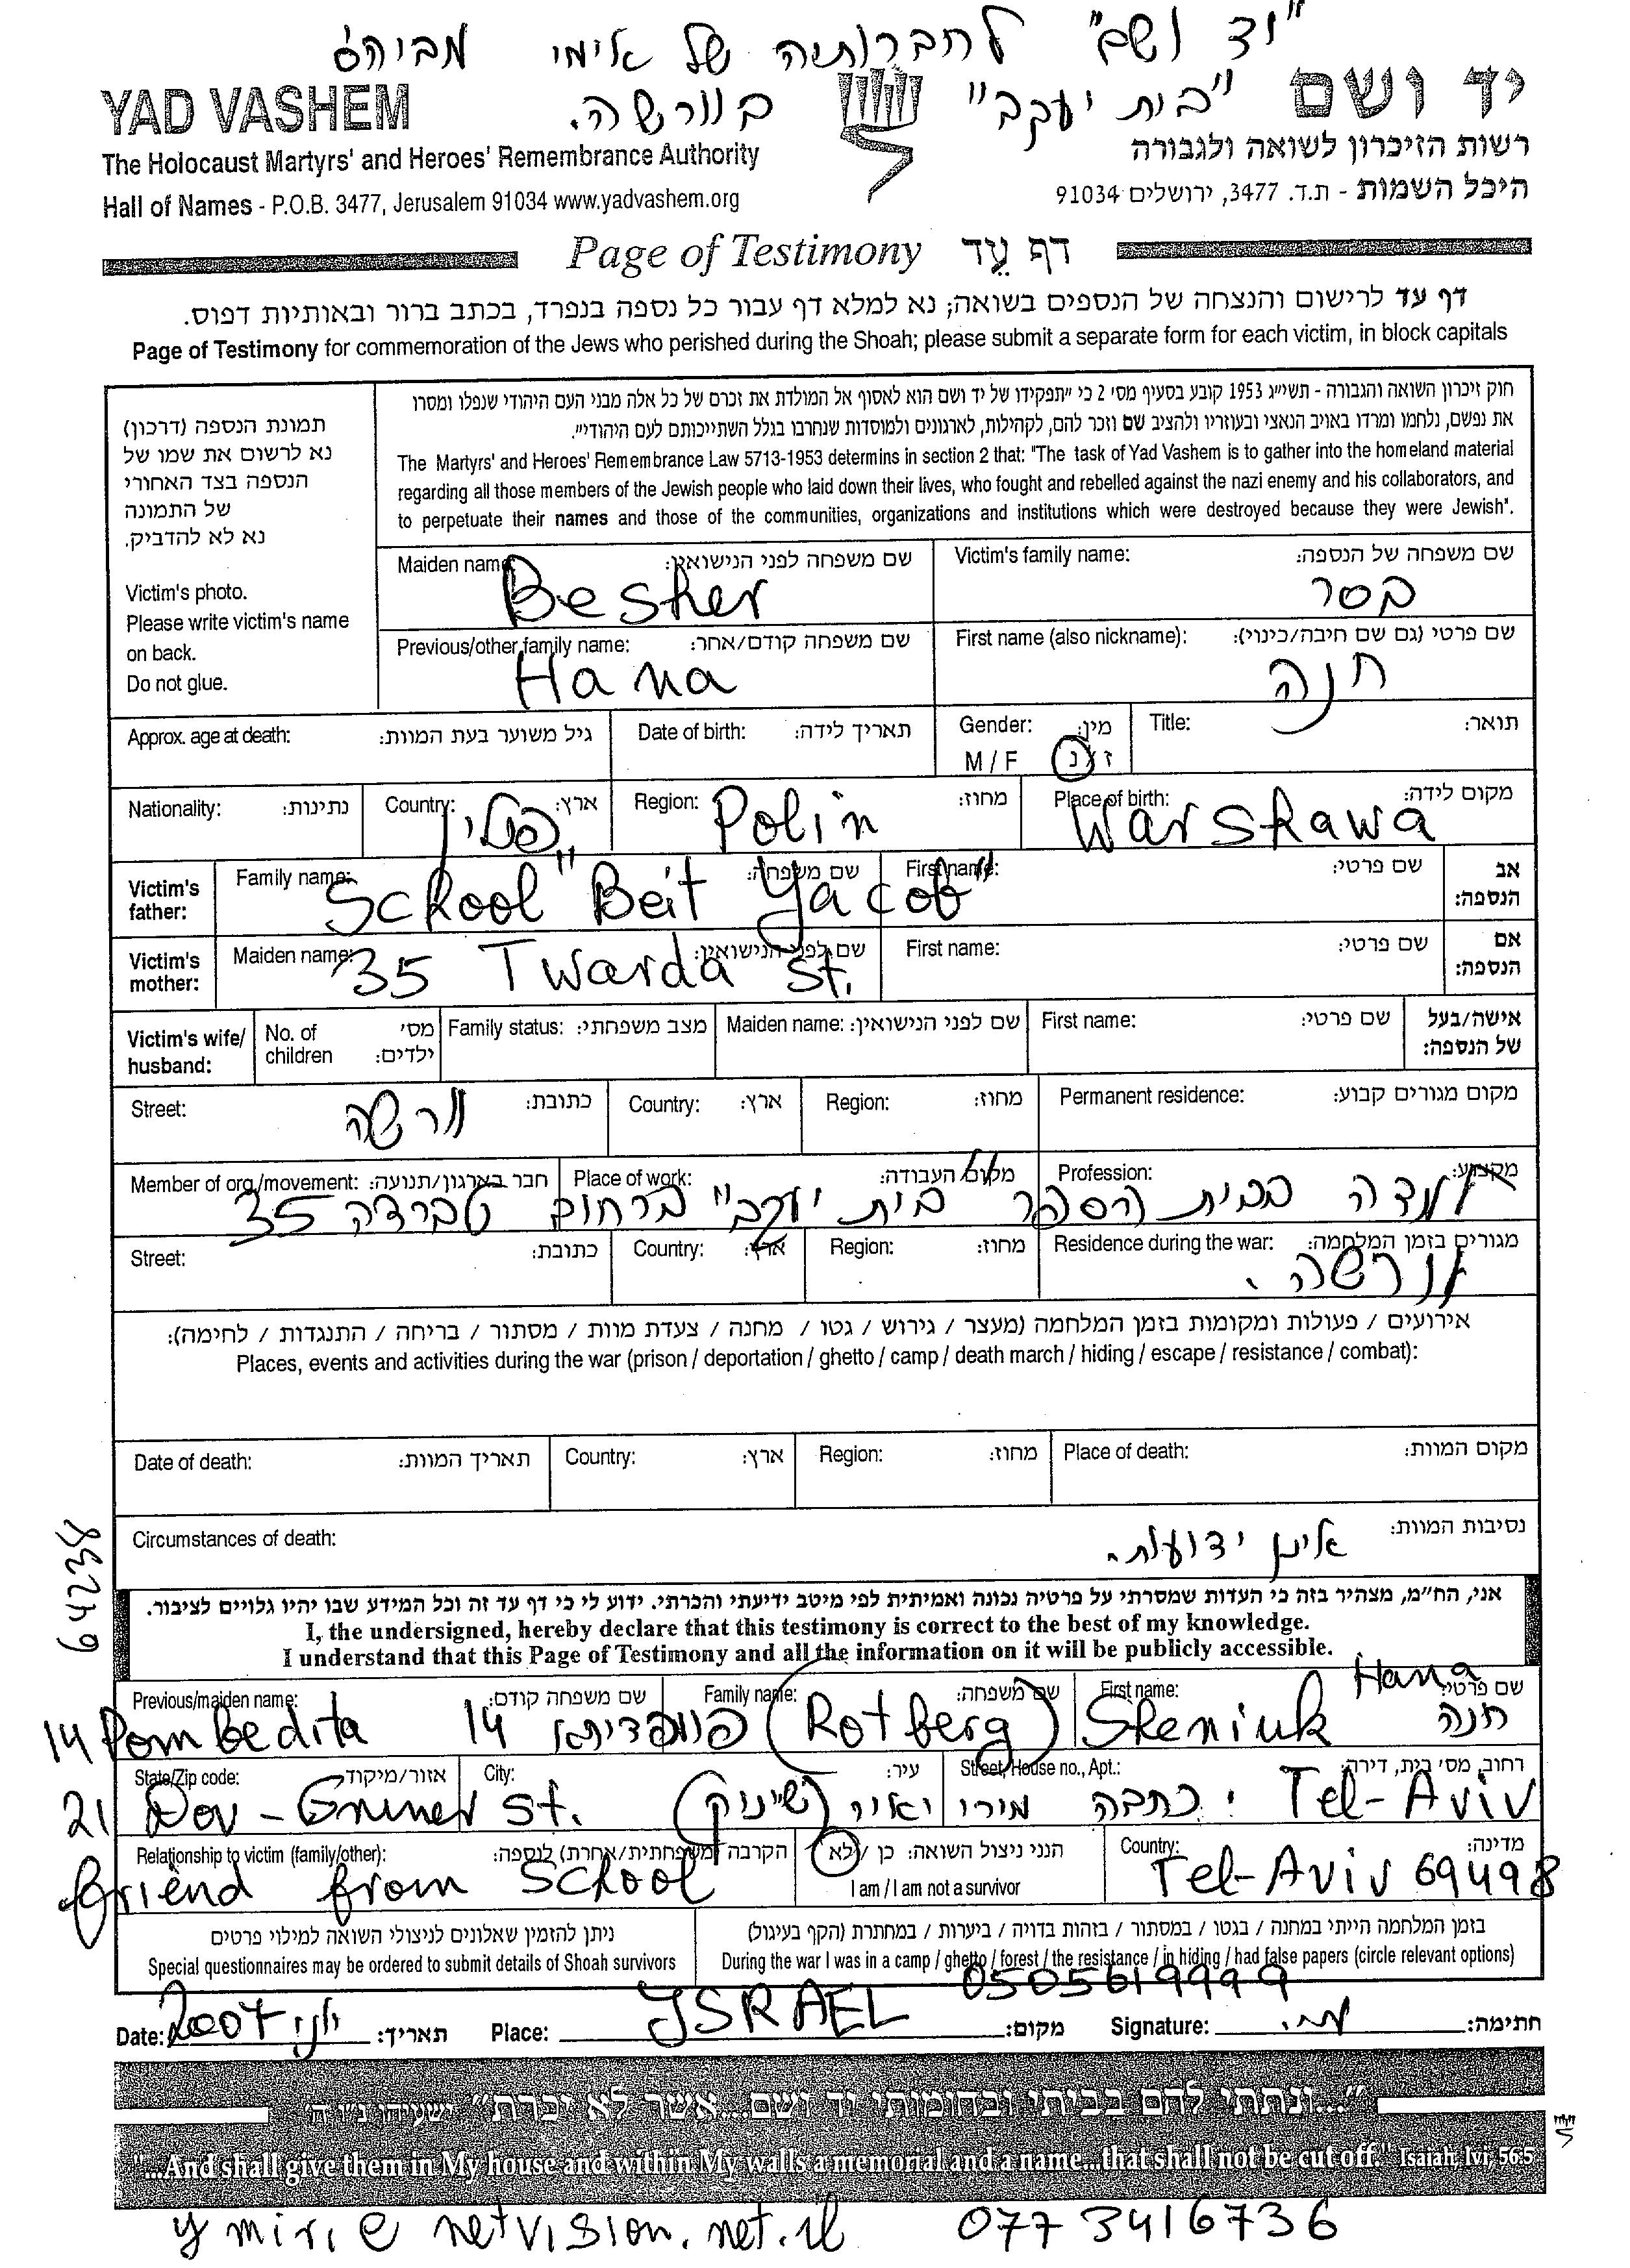 "יד ושם" לחברותיה של אימי מביה"ס
"בית יעקב" בוורשה.
YAD VASHEM
יד ושם
The Holocaust Martyrs' and Heroes' Remembrance Authority
רשות הזיכרון לשואה ולגבורה
Hall of Names - P.O.B. 3477, Jerusalem 91034 www.yadvashem.org
היכל השמות - ת.ד. 3477, ירושלים 91034
Page of Testimony דף עֵד
דף עד לרישום והנצחה של הנספים בשואה; נא למלא דף עבור כל נספה בנפרד, בכתב ברור ובאותיות דפוס.
Page of Testimony for commemoration of the Jews who perished during the Shoah; please submit a separate form for each victim, in block capitals
תמונת הנספה (דרכון)
נא לרשום את שמו של
הנספה בצד האחורי
של התמונה
נא לא להדביק.
Victim's photo.
Please write victim's name
on back.
Do not glue.
חוק זיכרון השואה והגבורה - תשי"ג 1953 קובע בסעיף מס' 2 כי "תפקידו של יד ושם הוא לאסוף אל המולדת את זכרם של כל אלה מבני העם היהודי שנפלו ומסרו
את נפשם, נלחמו ומרדו באויב הנאצי ובעוזריו ולהציב שם וזכר להם, לקהילות, לארגונים ולמוסדות שנחרבו בגלל השתייכותם לעם היהודי".
The Martyrs' and Heroes' Remembrance Law 5713-1953 determins in section 2 that: "The task of Yad Vashem is to gather into the homeland material
regarding all those members of the Jewish people who laid down their lives, who fought and rebelled against the nazi enemy and his collaborators, and
to perpetuate their names and those of the communities, organizations and institutions which were destroyed because they were Jewish".
Maiden name: שם משפחה לפני הנישואין: Victim's family name: שם משפחה של הנספה:
Besher בסר
Previous/other family name: שם משפחה קודם/אחר: First name (also nickname): שם פרטי (גם שם חיבה/כינוי):
Hana חנה
Approx. age at death: גיל משוער בעת המוות: Date of birth: תאריך לידה: Gender: מין: Title: תואר:
M / F ז / נ
Nationality: נתינות: Country: ארץ: Region: מחוז: Place of birth: מקום לידה:
פולין Polin Warshawa
Victim's father: Family name: שם משפחה: First name: שם פרטי: אב הנספה:
School "Beit Yacob"
Victim's mother: Maiden name: שם לפני הנישואין: First name: שם פרטי: אם הנספה:
35 Twarda St.
Victim's wife/ husband: No. of children מס' ילדים: Family status: מצב משפחתי: Maiden name: שם לפני הנישואין: First name: שם פרטי: אישה/בעל של הנספה:
Street: כתובת: Country: ארץ: Region: מחוז: Permanent residence: מקום מגורים קבוע:
וורשה
Member of org./movement: חבר בארגון/תנועה: Place of work: מקום העבודה: Profession: מקצוע:
למדה בבית הספר "בית יעקב" ברחוב טברדה 35
Street: כתובת: Country: ארץ: Region: מחוז: Residence during the war: מגורים בזמן המלחמה:
וורשה.
אירועים / פעולות ומקומות בזמן המלחמה (מעצר / גירוש / גטו / מחנה / צעדת מוות / מסתור / בריחה / התנגדות / לחימה):
Places, events and activities during the war (prison / deportation / ghetto / camp / death march / hiding / escape / resistance / combat):
Date of death: תאריך המוות: Country: ארץ: Region: מחוז: Place of death: מקום המוות:
Circumstances of death: נסיבות המוות:
אינן ידועות.
64238
אני, הח"מ, מצהיר בזה כי העדות שמסרתי על פרטיה נכונה ואמיתית לפי מיטב ידיעתי והכרתי. ידוע לי כי דף עד זה וכל המידע שבו יהיו גלויים לציבור.
I, the undersigned, hereby declare that this testimony is correct to the best of my knowledge.
I understand that this Page of Testimony and all the information on it will be publicly accessible.
Previous/maiden name: שם משפחה קודם: Family name: שם משפחה: First name: שם פרטי: Hana
14 Pombedita 14 פומפדיתא (Rotberg) Sheniuk חנה
State/Zip code: אזור/מיקוד City: עיר: Street, House no., Apt.: רחוב, מס' בית, דירה:
21 Dov-Gruner St. (שייניוק) כתבה: מירי יאיר Tel-Aviv
Relationship to victim (family/other): הקרבה (משפחתית/אחרת) לנספה: הנני ניצול השואה: כן / לא Country: מדינה:
friend from School I am / I am not a survivor Tel-Aviv 69498
ניתן להזמין שאלונים לניצולי השואה למילוי פרטים
Special questionnaires may be ordered to submit details of Shoah survivors
בזמן המלחמה הייתי במחנה / בגטו / במסתור / בזהות בדויה / ביערות / במחתרת (הקף בעיגול)
During the war I was in a camp / ghetto / forest / the resistance / in hiding / had false papers (circle relevant options)
0505619999
Date: יוני 2007 תאריך: Place: ISRAEL מקום: Signature: חתימה:
"...ונתתי להם בביתי ובחומותי יד ושם...אשר לא יכרת" ישעיהו נ"ו ה'
"...And shall give them in My house and within My walls a memorial and a name...that shall not be cut off." Isaiah, lvi, 56:5
ymiri@netvision.net.il 077 3416736